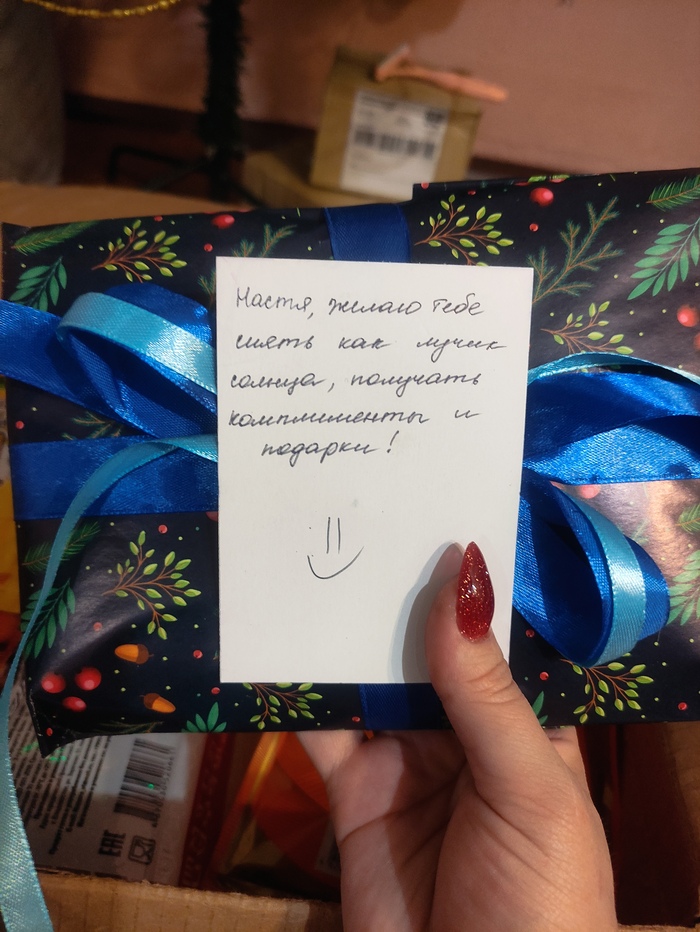 Настя, желаю тебе
сиять как лучик
солнца, получать
комплименты и
подарки!
EAC